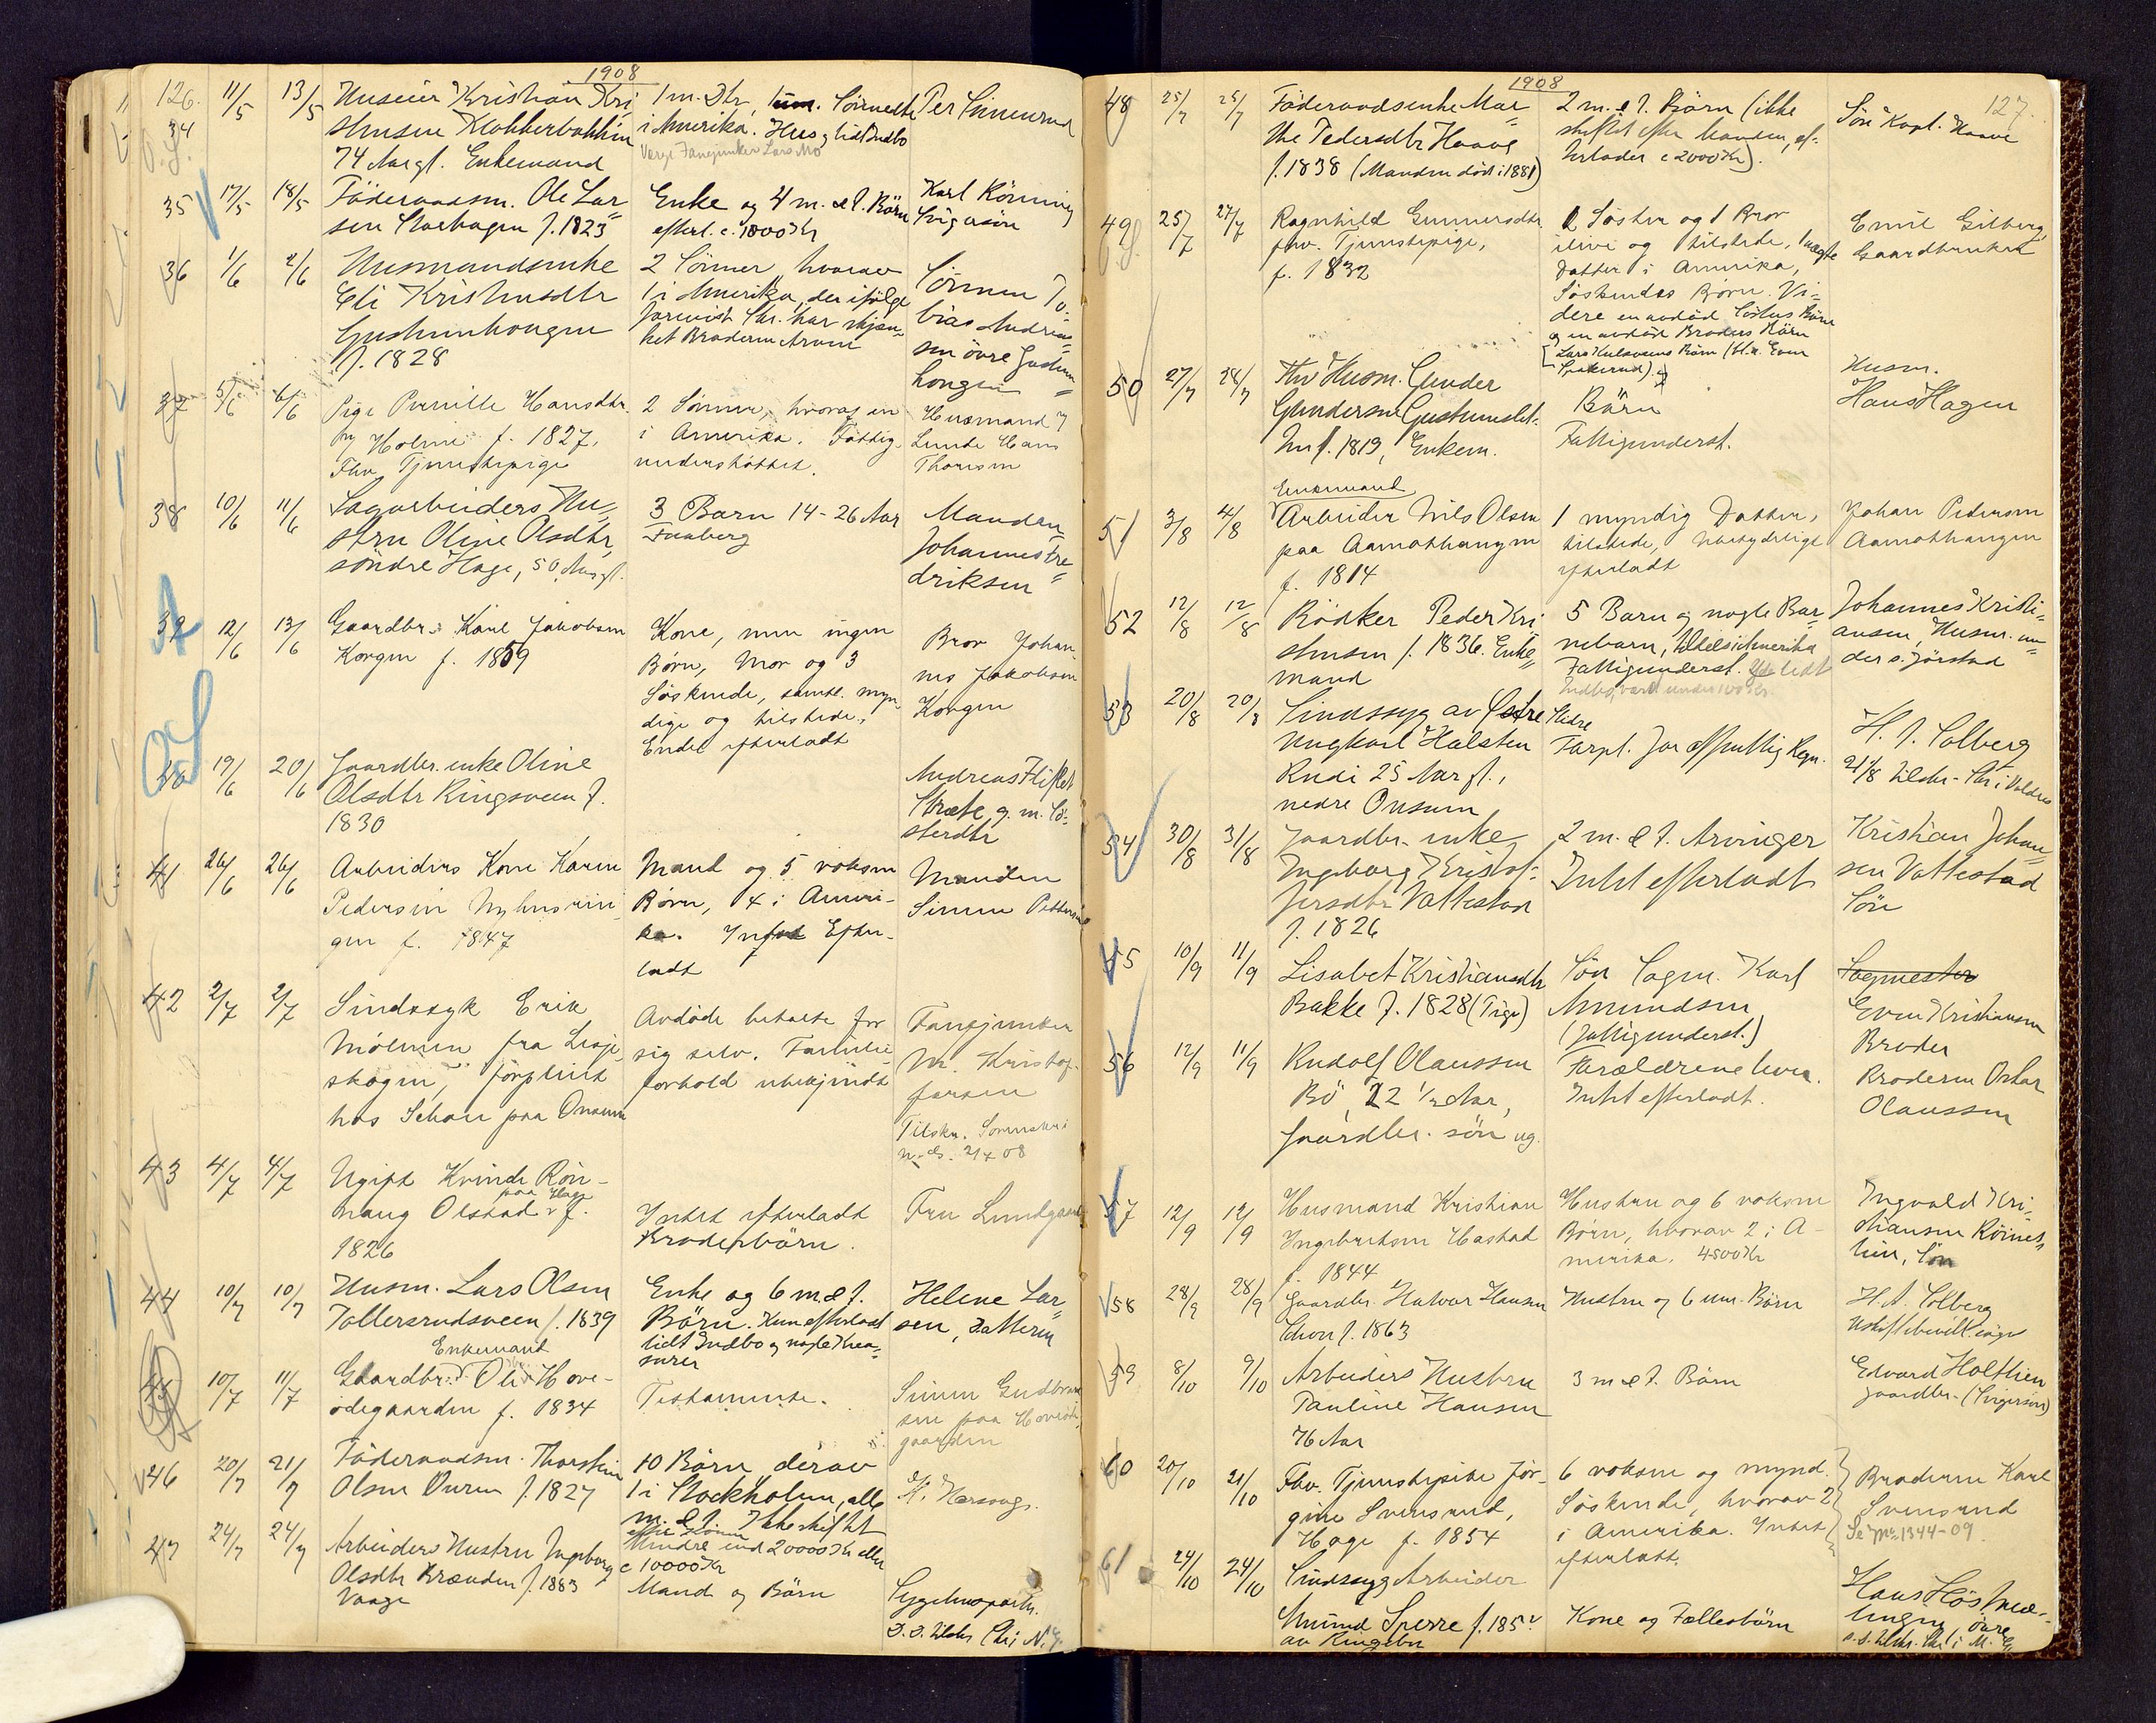 1908
126.
34 11/5 13/5 Huseier Kristian Kri
stensen Klokkerbakken
74 Aar gl. Enkemand
1 m. Dtr, 1 um. Sönnedtr
i Amerika. Hus og lidt Indbo
Værge Fanejunker Lars Mo
Per Sunnerud
35 17/5 18/5 Föderaadsm. Ole Lar
sen Storhagen f. 1823
Enke og 4 m. & t. Börn
efterl. c. 1000 Kr
Karl Rönning
Svigersön
36 1/6 2/6 Husmandsenke
Eli Kristensdtr
Gustumhougen
f. 1828
2 Sönner hvorav
1 i Amerika, der ifölge
har skjen-
ket Broderen Arven
Sönnen To-
bias Andrea-
sen övre
hougen
37 5/6 6/6 Pige Pernille Hansdtr
f. 1827.
Fhv. Tjenestepige
2 Sönner, hvoraf en
i Amerika. Fattig-
understöttet.
Husmand
Lunde Hans
Thoresen
38 10/6 11/6 Sagarbeiders Hu-
stru Oline Olsdtr,
söndre Hage, 50 Aar gl.
3 Barn 14-26 Aar
Faaberg
Manden
Johannes Fre-
driksen
39 12/6 13/6 Gaardbr. Karl Jakobsen
Korgen f. 1859
Kone, men ingen
Börn, Mor og 3
Söskende, samtl. myn-
dige og tilstede.
Endel efterladt
Bror Johan-
nes Jakobsen
Korgen
40 19/6 20/6 Gaardbr. enke Oline
Olsdtr Ringsveen f.
1830
Andreas
Stræte g. m. Sö-
sterdtr
41 26/6 26/6 Arbeiders Kone Karen
Pedersen
gen f. 1847
Mand og 5 voksne
Börn, 4 i Ameri-
ka. Intet Efter-
ladt
Manden
Simen Pettersen
42 2/7 2/7 Sindssyk Erik
Mölmen fra Lesje-
skogen, forpleiet
hos Schou paa Onsum
Avdöde betalte for
sig selv. Familie-
forhold ubekjendt
Fanejunker
M. Kristof-
fersen
Tilskr. Sorenskri
N.-G. 2/7 08
43 4/7 4/7 Ugift Kvinde Rön-
naug Olstad f.
paa Hage
1826
Intet efterladt
Broderbörn.
Fru Lundgaard
44 10/7 10/7 Husm. Lars Olsen
Tollersrudsveen f. 1839
Enke og 6 m. & t.
Börn. Kun efterladt
lidt Indbo og nogle Krea-
turer
Helene Lar-
sen, Datteren
45 10/7 11/7 Enkemand
Gaardbr. Ole Hove-
ödegaarden f. 1834
Testamente.
Simen Gudbrand
sen paa Hoveöde-
gaarden
46 20/7 21/7 Föderaadsm. Thorstein
Olsen Duren f. 1827
10 Börn, derav
1 i Stockholm, alle
m. & t. Ikke skiftet
efter Konen
Mindre end 20000 Kr eller
c 10000 Kr
47 24/7 24/7 Arbeiders Hustru Ingeborg
Olsdtr Brænden f. 1883
Vaage
Mand og Börn
1908
127.
48 25/7 25/7 Föderaadsenke Mar-
the Pedersdtr Haave
f. 1838 (Manden död i 1881)
2 m. & t. Börn (ikke
skiftet efter Manden, ef-
terlader c 2000 Kr).
Sön Kapt. Haave
49 25/7 27/7 Ragnhild Gunnersdtr.
fhv. Tjenestepige,
f. 1832
Söster og 1 Bror
ilive og tilstede, 1 uægte
Datter i Amerika,
Söskendes Börn. Vi-
dere en avdöd Sösters Börn
og en avdöd Broders Börn
Emil Gilberg
Gaardbruker
50 27/7 28/7 Fhv Husm. Gunder
Gundersen
f. 1819, Enkem.
Börn
Fattigunderst.
Husm.
Hans Hagen
51 3/8 4/8 Enkemand
Arbeider Nils Olsen
paa Aamothaugen
f. 1814
1 myndig Datter,
tilstede, ubetydelige
efterladt
Johan Pedersen
Aamothaugen
52 12/8 12/8 Bödker Peder Kri
stensen f. 1836. Enke-
mand
5 Barn og nogle Bar-
nebarn, tildels i Amerika
Fattigunderst. lidt
Indbo, værd under 100 Kr.
Johannes Kristi-
ansen, Husm. un-
der s. Jörstad
53 20/8 20/8 Sindssyg av Östre Slidre
Ungkarl Halsten
Rudi 25 Aar gl.,
nedre Onsum
Forpl. for offentlig Regn.
H. J. Solberg
21/8 tilskr. Skr i Valdres
54 30/8 31/8 Gaardbr. enke
Ingeborg Kristof-
fersdtr Vattestad
f. 1826
2 m. & t. Arvinger
Intet efterladt
Kristian Johan-
sen Vattestad
Sön
55 10/9 11/9 Lisabet Kristiansdtr
Bakke f. 1828 (Pige)
Sön Sagm. Karl
Amundsen
(Fattigunderst.)
Sagmester
Even Kristiansen
Broder
56 12/9 11/9 Rudolf Olaussen
Bö, 22 1/2 Aar,
Gaardbr. sön ug.
Forældrene lever.
Intet efterladt.
Broderen Oskar
Olaussen
57 12/9 12/9 Husmand Kristian
Ingebretsen Hastad
f. 1844
Hustru og 6 voksne
Börn, hvorav 2 i A-
merika. 4500 Kr
Ingvald Kri-
stiansen
Sön
58 28/9 28/9 Gaardbr. Halvor Hansen
Schou f. 1863
Hustru og 6 um. Börn
H. A. Solberg
59 8/10 9/10 Arbeiders Hustru
Pauline Hansen
76 Aar
3 m & t. Börn
Edvard Holthien
gaardbr. (Svigersön)
60 20/10 21/10 Fhv. Tjenestepike Jör-
gine Svensrud,
Hage f. 1854
6 voksne og mynd.
Söskende, hvorav 2
i Amerika. Intet
efterladt.
Broderen Karl
Svensrud
Se No 1344-09
61 24/10 24/10 Sindssyg Arbeider
Amund Sperre f. 185
av Ringebu
Kone og Fællesbörn